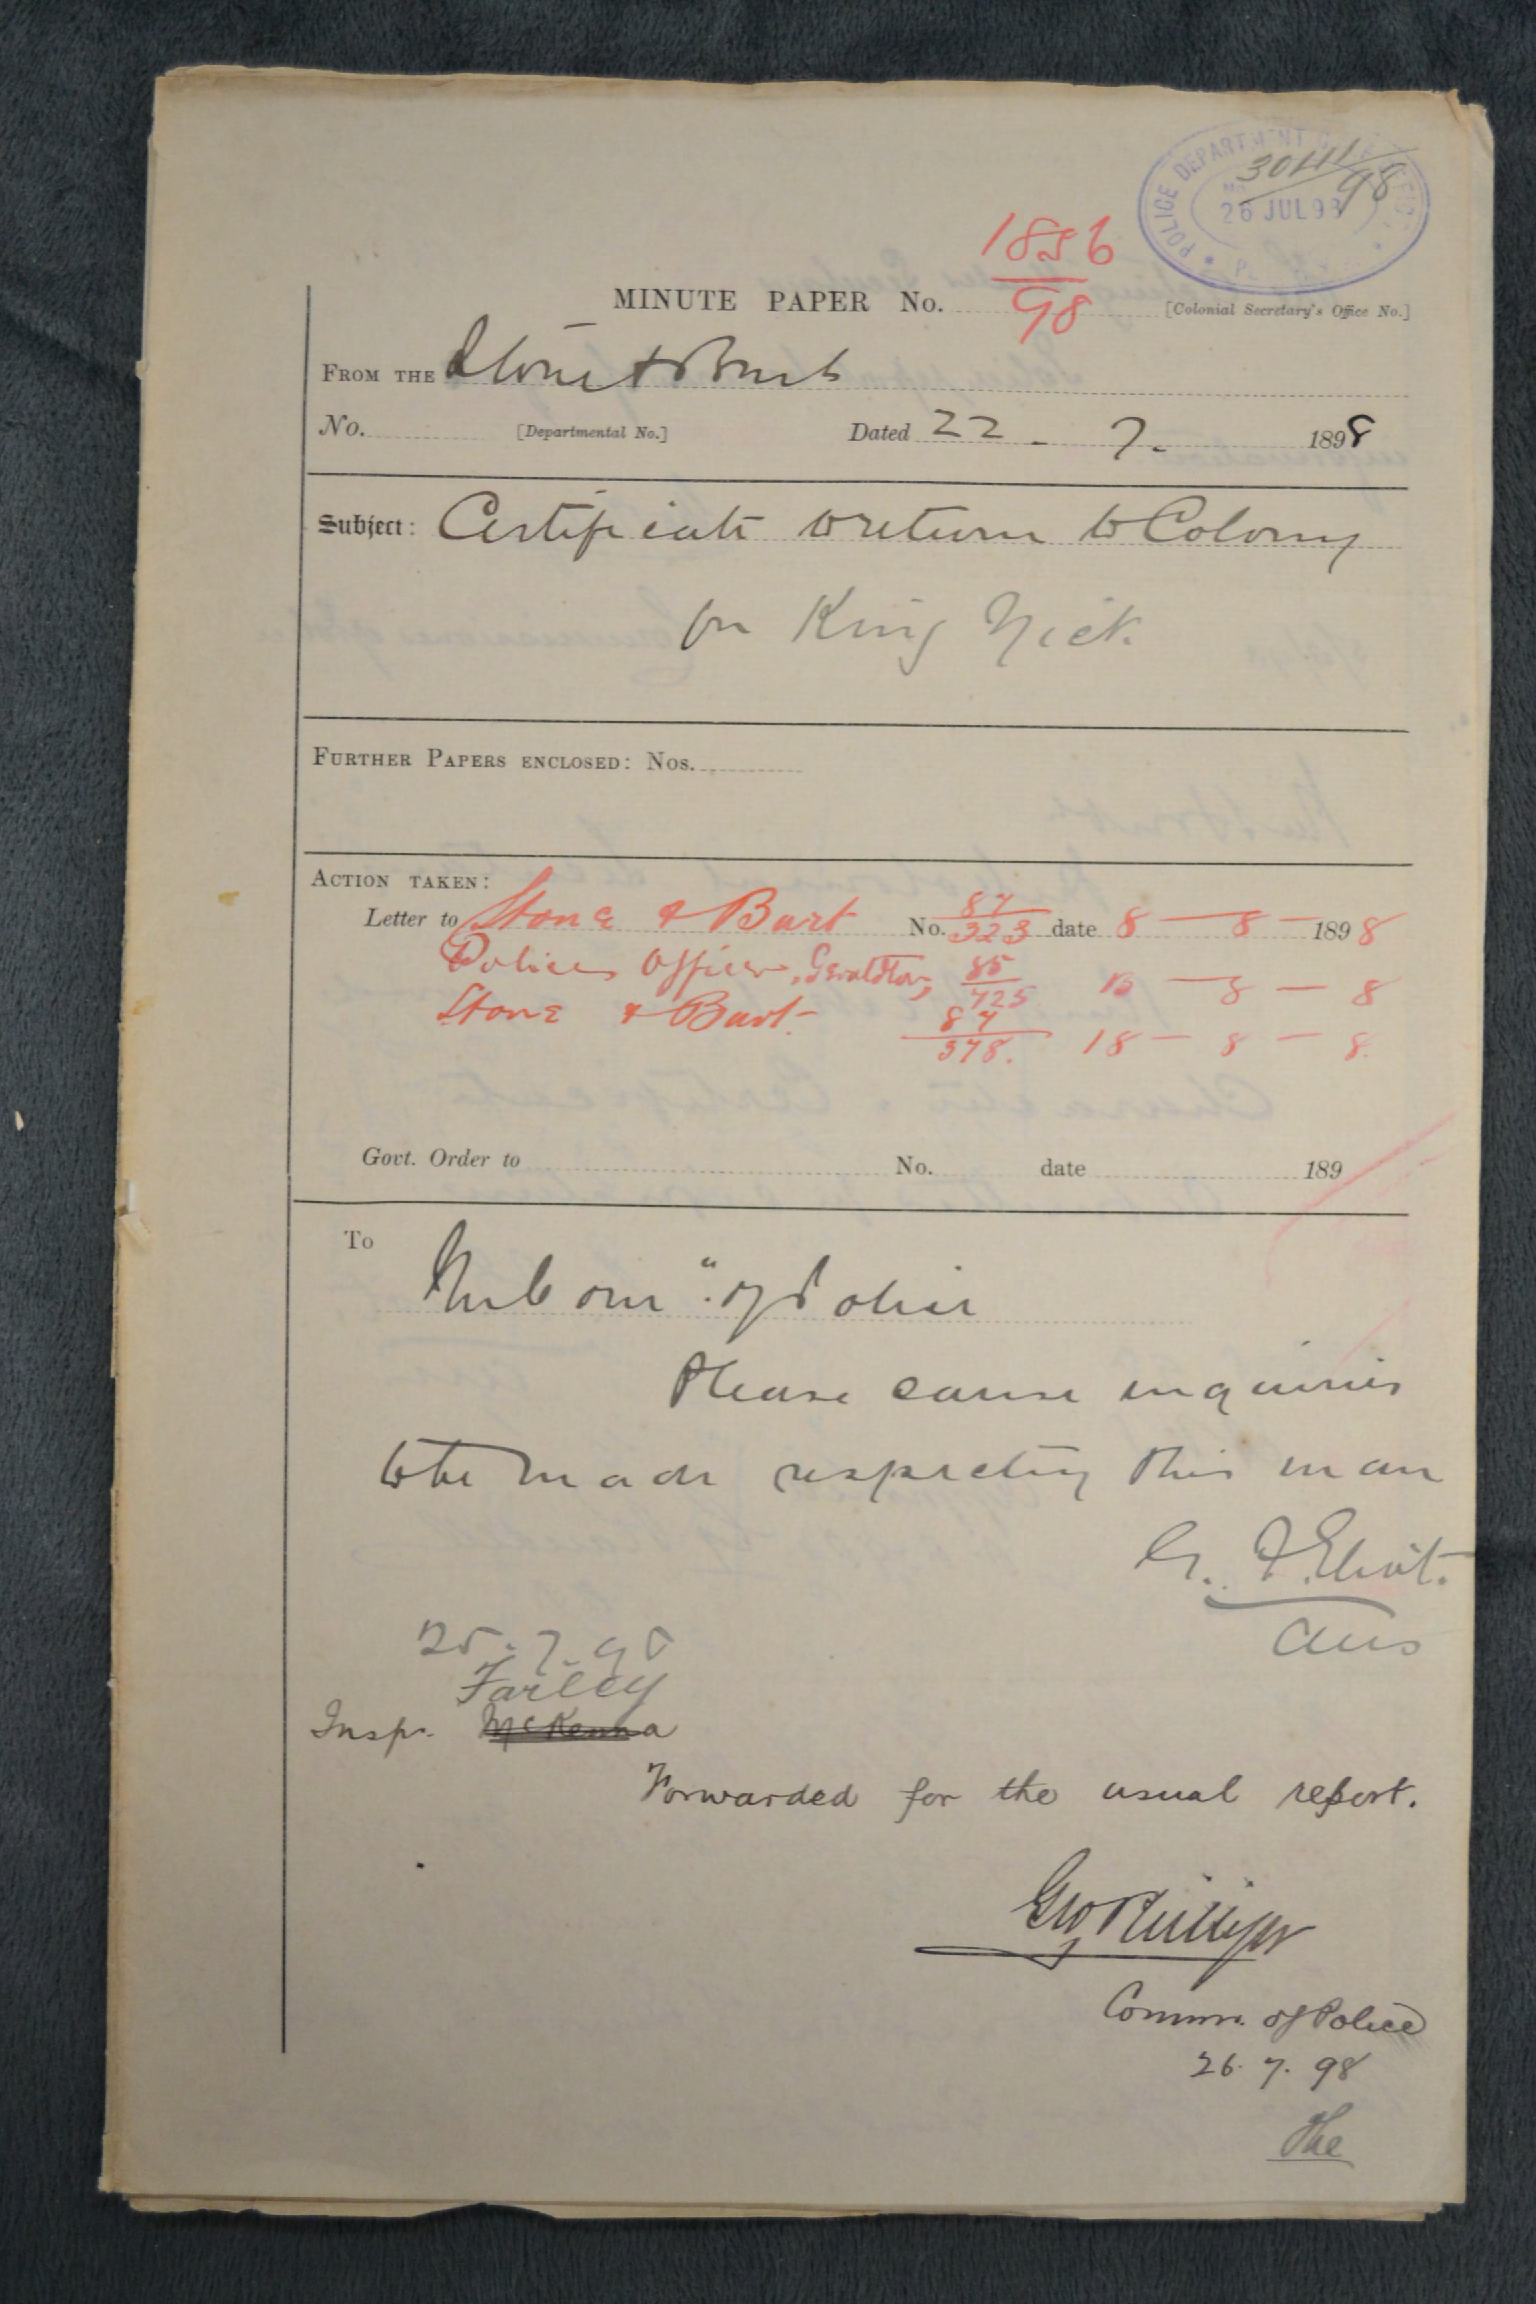 POLICE DEPARTMENT
26 JUL 98
1856
98
MINUTE PAPER No.
[Colonial Secretary's Office No.]
FROM THE Stone & Burt
No. [Departmental No.] Dated 22 - 7. 1898
Subject: Certificate to return to Colony
for King Nick.
FURTHER PAPERS ENCLOSED: Nos.
ACTION TAKEN:
Letter to Stone & Burt No. 87/323 date 8 — 8 — 1898
Police Officer, Geraldton, 85/425 13 — 8 — 8
Stone & Burt. 87/378. 18 — 8 — 8.
Govt. Order to No. date 189
To
The Com "." of Police
Please cause inquiries
to be made respecting this man
G. F. Eliot.
25.7.98
Farley
Inspr. McKenna
Forwarded for the usual report.
Geo Phillips
Commr. of Police
26. 7. 98
The